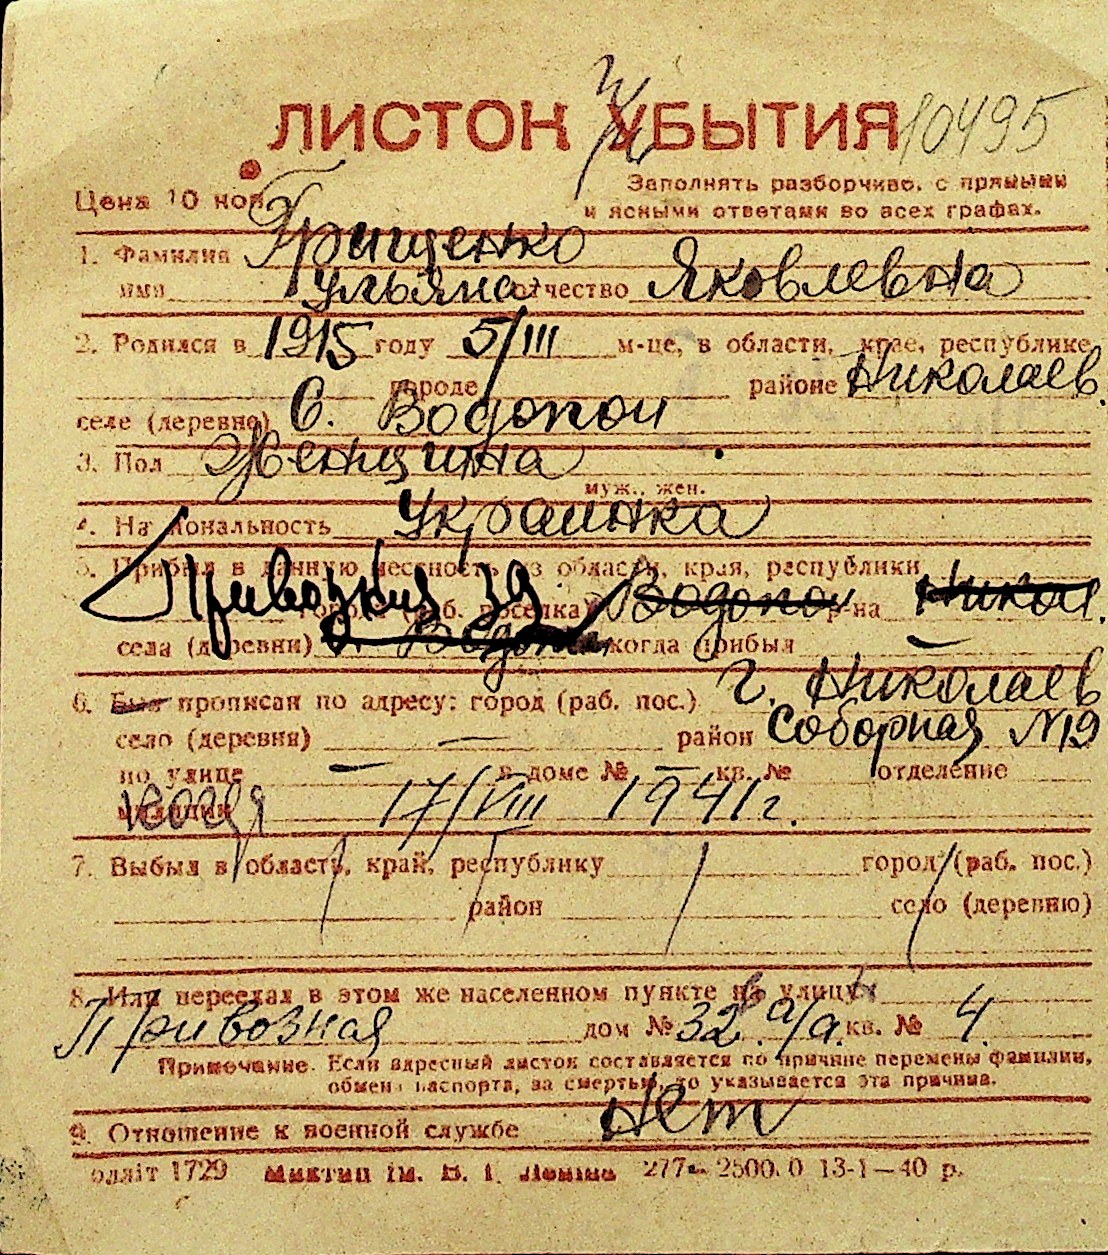 ЛИСТОК УБЫТИЯ 10495
Цена 10 коп.
Заполнять разборчиво, с прямыми
и ясными ответами во всех графах.
1. Фамилия Грищенко
имя Ульяна отчество Яковлевна
2. Родился в 1915 году 5/III м-це, в области, крае, республике
городе районе Николаев.
селе (деревне) С. Водопои
3. Пол Женщина
муж., жен.
4. Национальность Украинка
5. Прибыл в данную местность из области, края, республики
города (раб. поселка) Водопои р-на Никол.
села (деревни) с. Водопои когда прибыл —
6. Был прописан по адресу: город (раб. пос.) г. Николаев
село (деревня) — район Соборная №19
по улице — в доме № — кв. № отделение
милиции 17/VIII 1941 г.
7. Выбыл в область, край, республику город (раб. пос.)
район село (деревню)
8. Или переехал в этом же населенном пункте на улицу
Привозная дом № 32 а/а. кв. № 4.
Примечание. Если адресный листок составляется по причине перемены фамилии,
обмена паспорта, за смертью, то указывается эта причина.
9. Отношение к военной службе Нет
олліт 1729 Миктип ім. В. І. Леніна 277— 2500.0 13-1—40 р.